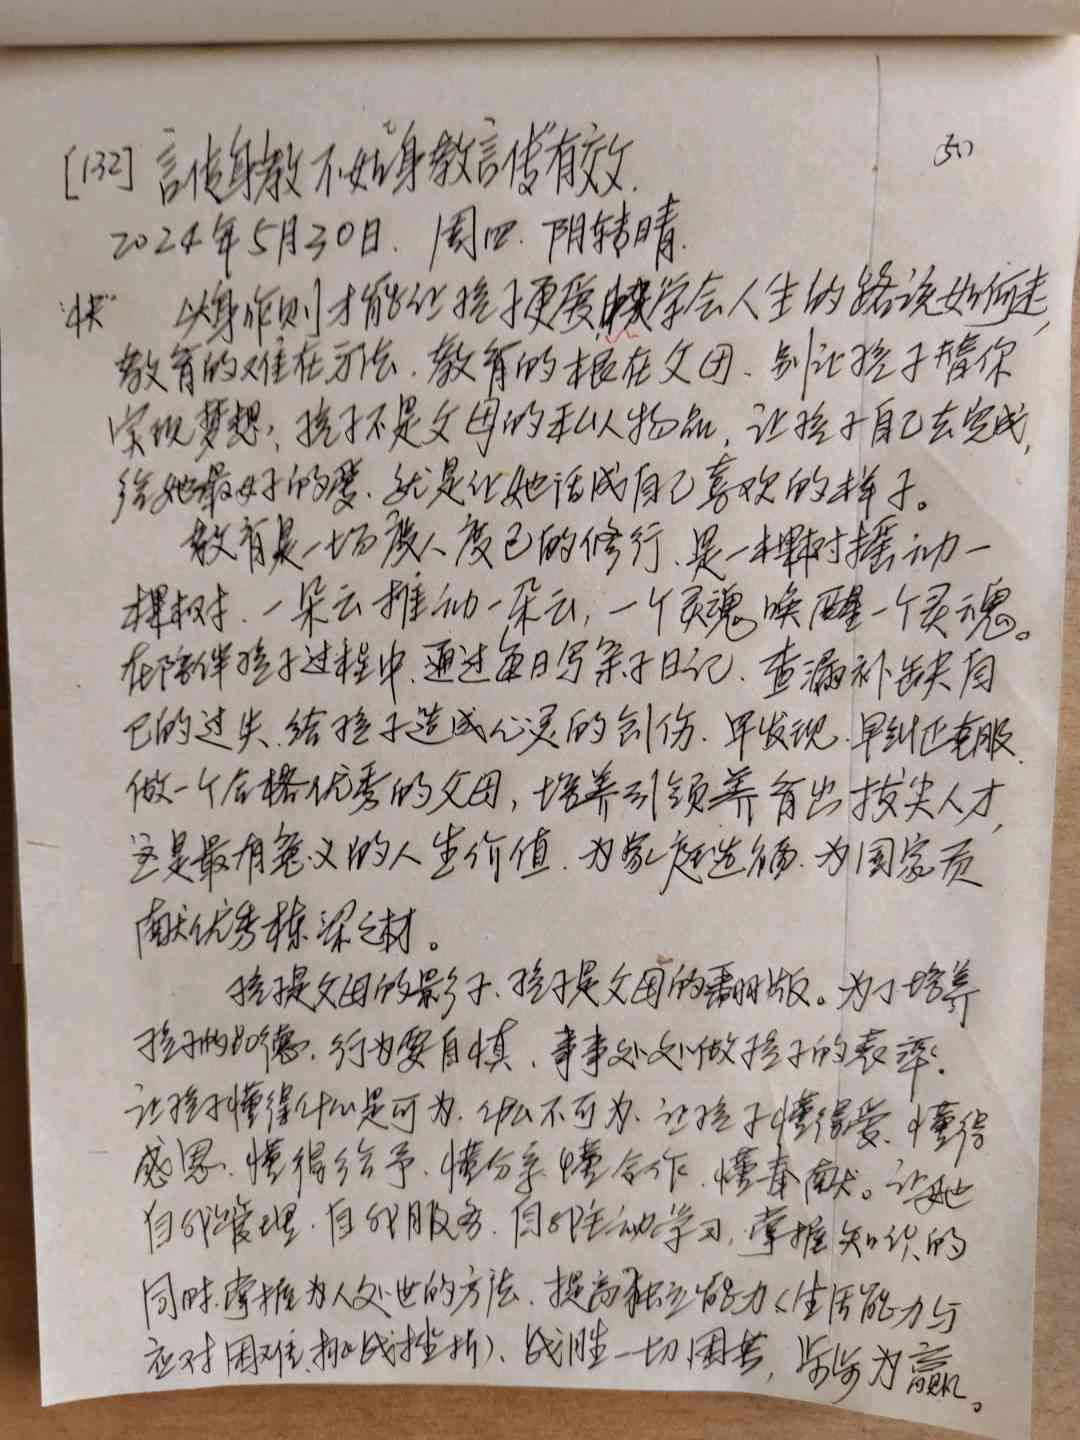 [132] 言传身教不如"身教言传"有效.
2024年5月30日. 周四. 阴转晴.
以身作则才能让孩子更爱,学会人生的路该如何走,
教育的难在方法.教育的根在父母、别让孩子替你
实现梦想;孩子不是父母的私人物品,让孩子自己去完成,
给她最好的爱、就是让她活成自己喜欢的样子。
教育是一场度人度己的修行、是一棵树摇动一
棵树、一朵云推动一朵云,一个灵魂唤醒一个灵魂。
在陪伴孩子过程中、通过每日写亲子日记、查漏补缺自
己的过失、给孩子造成心灵的创伤、早发现、早纠正克服.
做一个合格优秀的父母,培养引领养育出拔尖人才,
这是最有意义的人生价值、为家庭造福、为国家贡
献优秀栋梁之材。
孩子是父母的影子、孩子是父母的翻版。为了培养
孩子的品德、行为要自慎、事事处处做孩子的表率.
让孩子懂得什么是可为、什么不可为、让孩子懂得爱、懂得
感恩、懂得给予、懂分享、懂合作、懂奉献。让她
自我管理、自我服务、自我主动学习,掌握知识的
同时、掌握为人处世的方法、提高独立能力(生活能力与
应对困难、挑战挫折)、战胜一切困苦,步步为赢。